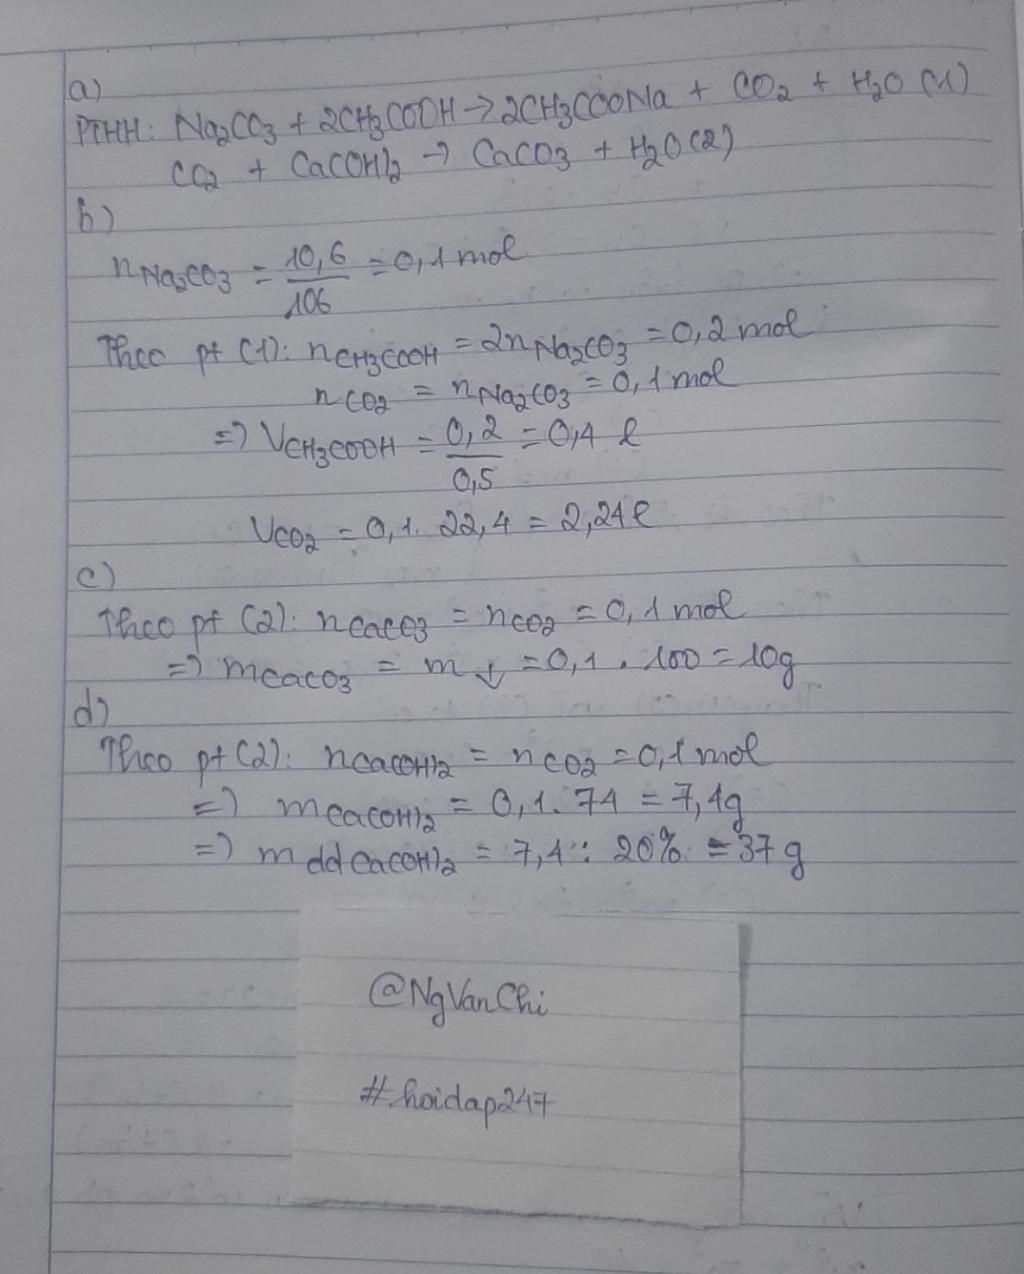 a)
PTHH: Na₂CO₃ + 2CH₃COOH → 2CH₃COONa + CO₂ + H₂O (1)
CO₂ + Ca(OH)₂ → CaCO₃ + H₂O (2)
b)
nNa₂CO₃ = 10,6/106 = 0,1 mol
Theo pt (1): nCH₃COOH = 2nNa₂CO₃ = 0,2 mol
nCO₂ = nNa₂CO₃ = 0,1 mol
=> VCH₃COOH = 0,2/0,5 = 0,4 l
VCO₂ = 0,1. 22,4 = 2,24 l
c)
Theo pt (2): nCaCO₃ = nCO₂ = 0,1 mol
=> mCaCO₃ = m↓ = 0,1 . 100 = 10g
d)
Theo pt (2): nCa(OH)₂ = nCO₂ = 0,1 mol
=> mCa(OH)₂ = 0,1. 74 = 7,4g
=> mddCa(OH)₂ = 7,4 : 20% = 37 g
@NgVanChi
#hoidap247